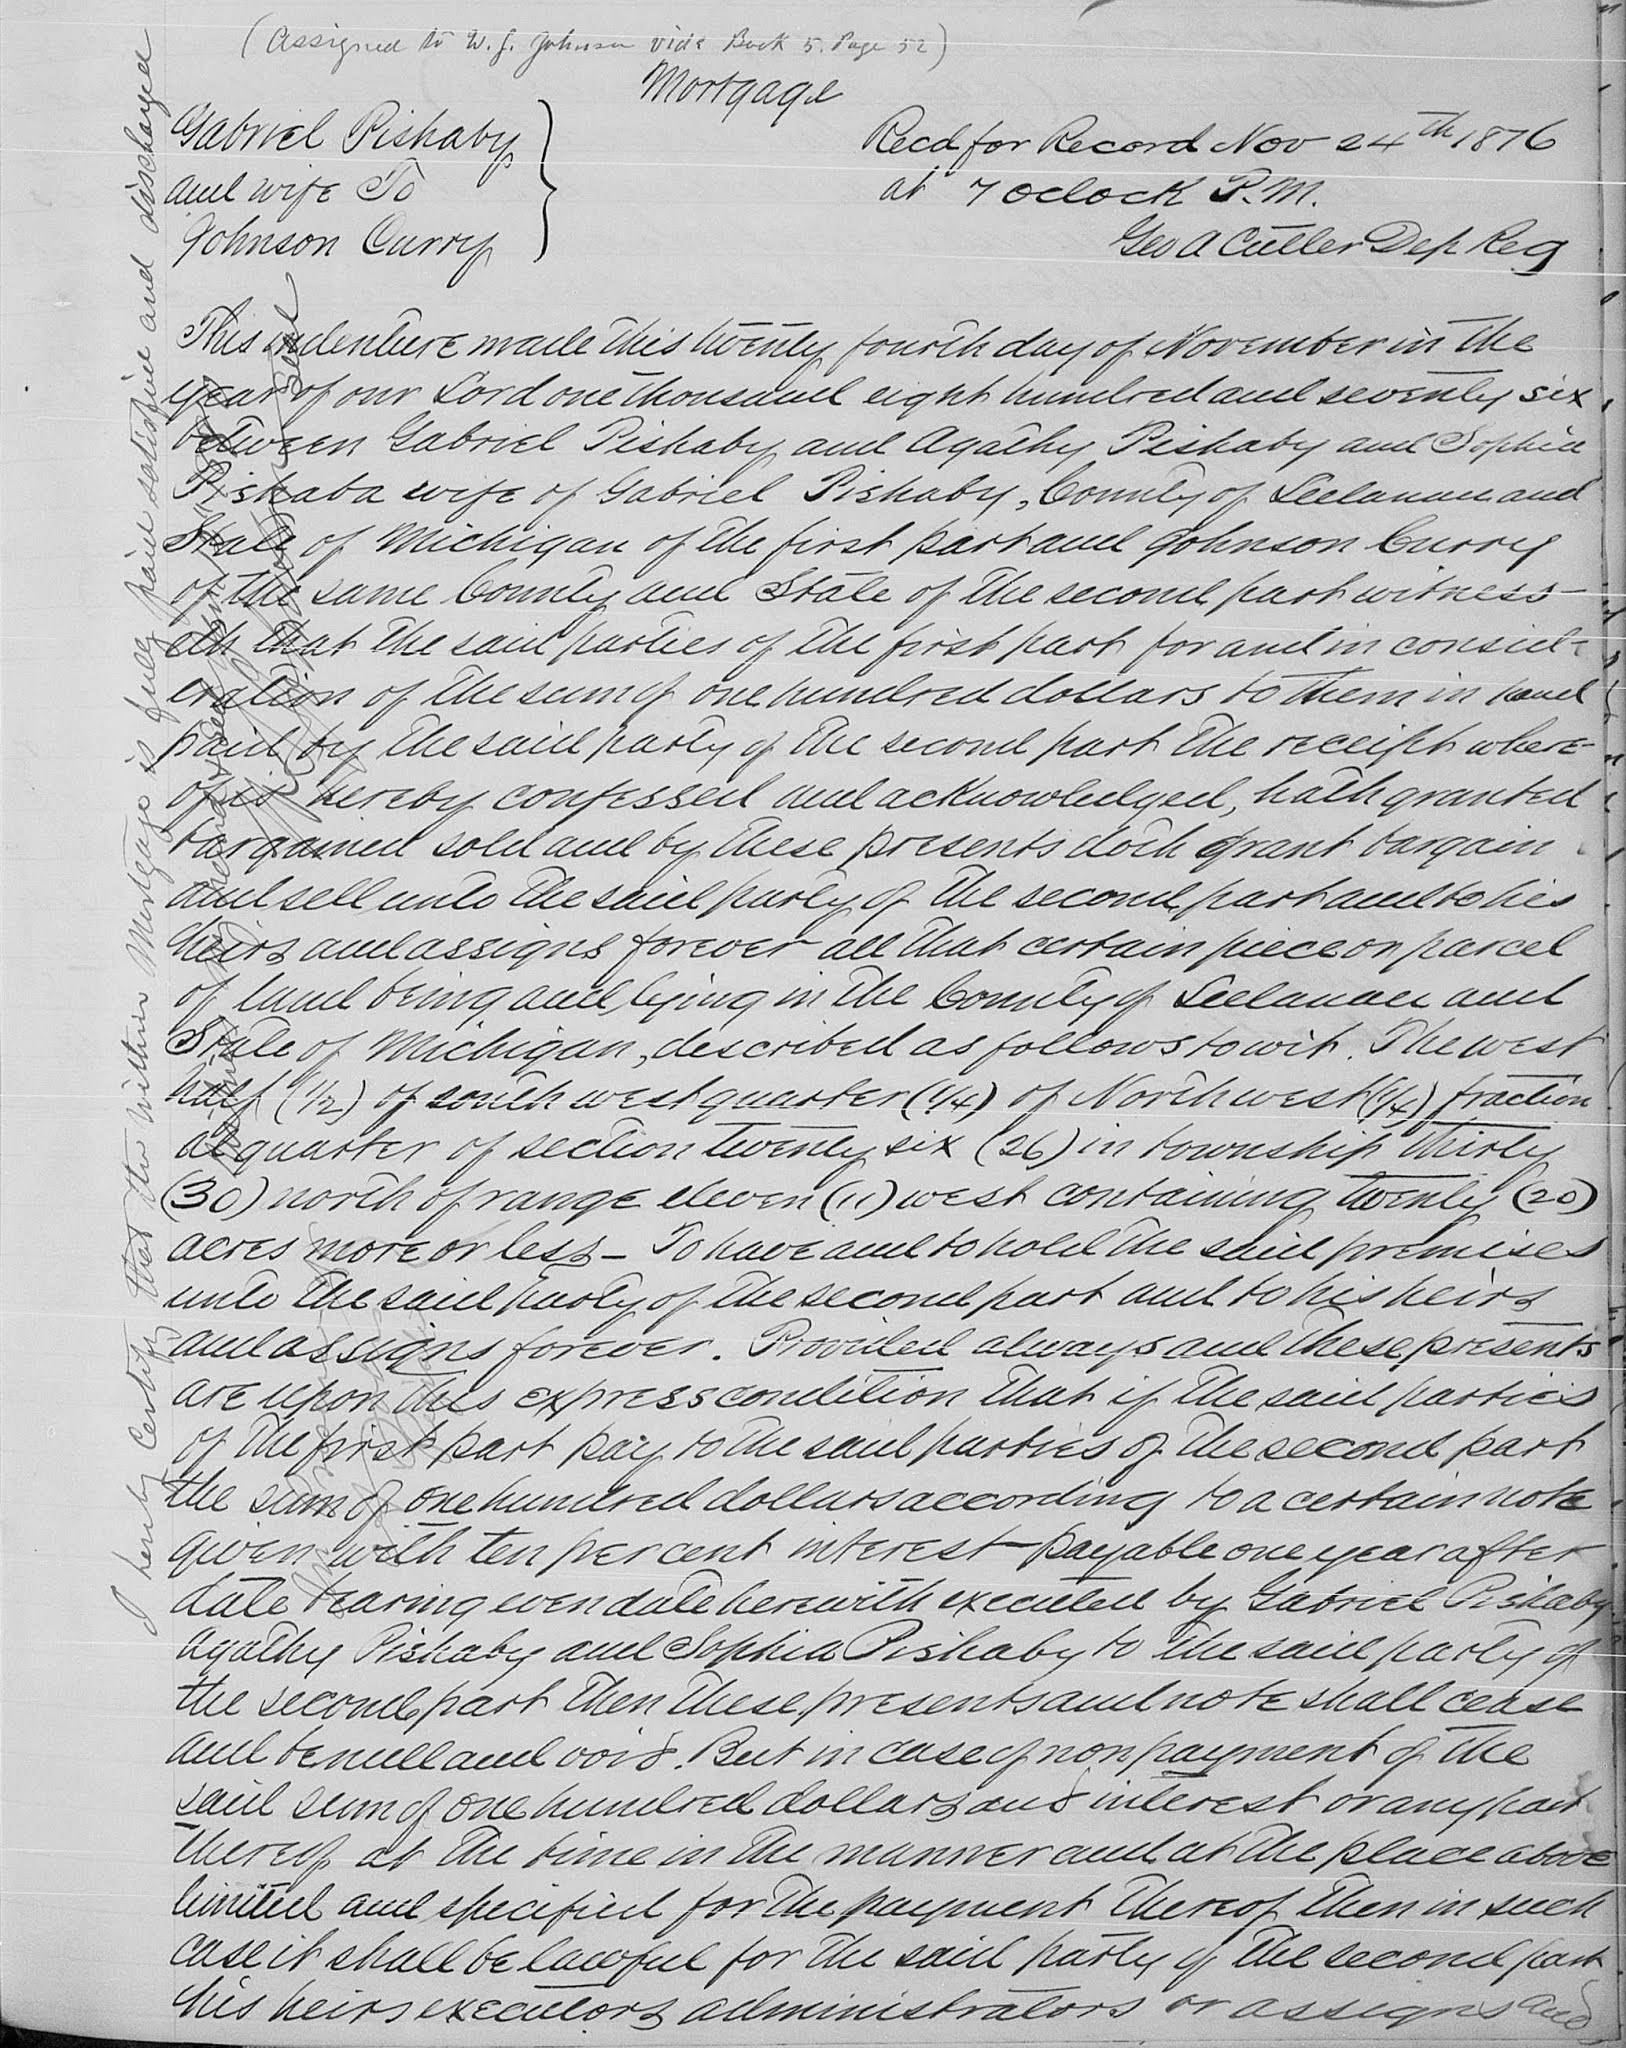 (Assigned to W. J. Johnson vide Book 5. Page 52)
Mortgage
Gabriel Pishaby
and wife To
Johnson Curry
Recd for Record Nov 24th 1876
at 7 oclock P.M.
Geo A Cutler Dep Reg
This indenture made this twenty fourth day of November in the
year of our Lord one thousand eight hundred and seventy six
between Gabriel Pishaby and Agathy Pishaby and Sophia
Pishaba wife of Gabriel Pishaby, County of Leelanau and
State of Michigan of the first part and Johnson Curry
of the same County and State of the second part witness-
eth that the said parties of the first part for and in consid-
eration of the sum of one hundred dollars to them in hand
paid by the said party of the second part the receipt where-
of is hereby confessed and acknowledged, hath granted
bargained sold and by these presents doth grant bargain
and sell unto the said party of the second part and to his
heirs and assigns forever all that certain piece or parcel
of land being and lying in the County of Leelanau and
State of Michigan, described as follows to wit. The west
half (1/2) of south west quarter (1/4) of North west (1/4) fraction
al quarter of section twenty six (26) in township thirty
(30) north of range eleven (11) west containing twenty (20)
acres more or less - To have and to hold the said premises
unto the said party of the second part and to his heirs
and assigns forever. Provided always and these presents
are upon this express condition that if the said parties
of the first part pay to the said parties of the second part
the sum of one hundred dollars according to a certain note
given with ten per cent interest payable one year after
date bearing even date herewith executed by Gabriel Pishaby
Agathy Pishaby and Sophia Pishaby to the said party of
the second part then these presents and note shall cease
and be null and void. But in case of non payment of the
said sum of one hundred dollars and interest or any part
thereof at the time in the manner and at the place above
limited and specified for the payment thereof then in such
case it shall be lawful for the said party of the second part
his heirs executors administrators or assigns and
I hereby certify that the within Mortgage is fully paid satisfied and discharged